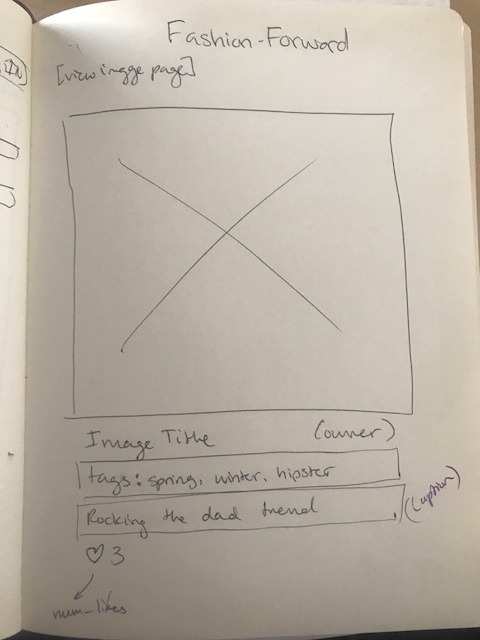 Fashion-Forward
[view image page]
Image Title (owner)
tags: spring, winter, hipster
Rocking the dad trend
(caption)
♡ 3
num_likes